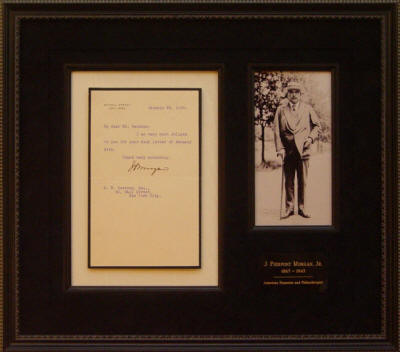 My dear Mr.
I am very much obliged
to you for your kind letter of January
Yours very sincerely,
JPMorgan
Esq.,
Wall Street,
New York City.
J. PIERPONT MORGAN, JR.
1867 - 1943
American Financier and Philanthropist